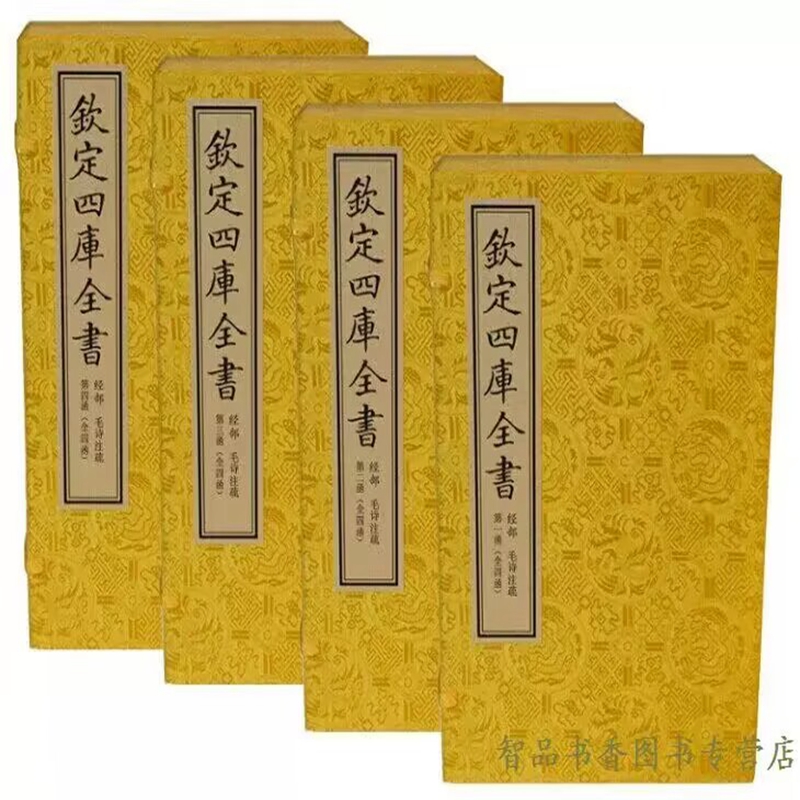 欽定四庫全書
经部 毛诗注疏
第四函（全四函）
欽定四庫全書
经部 毛诗注疏
第三函（全四函）
欽定四庫全書
经部 毛诗注疏
第二函（全四函）
欽定四庫全書
经部 毛诗注疏
第一函（全四函）
智品书香图书专营店